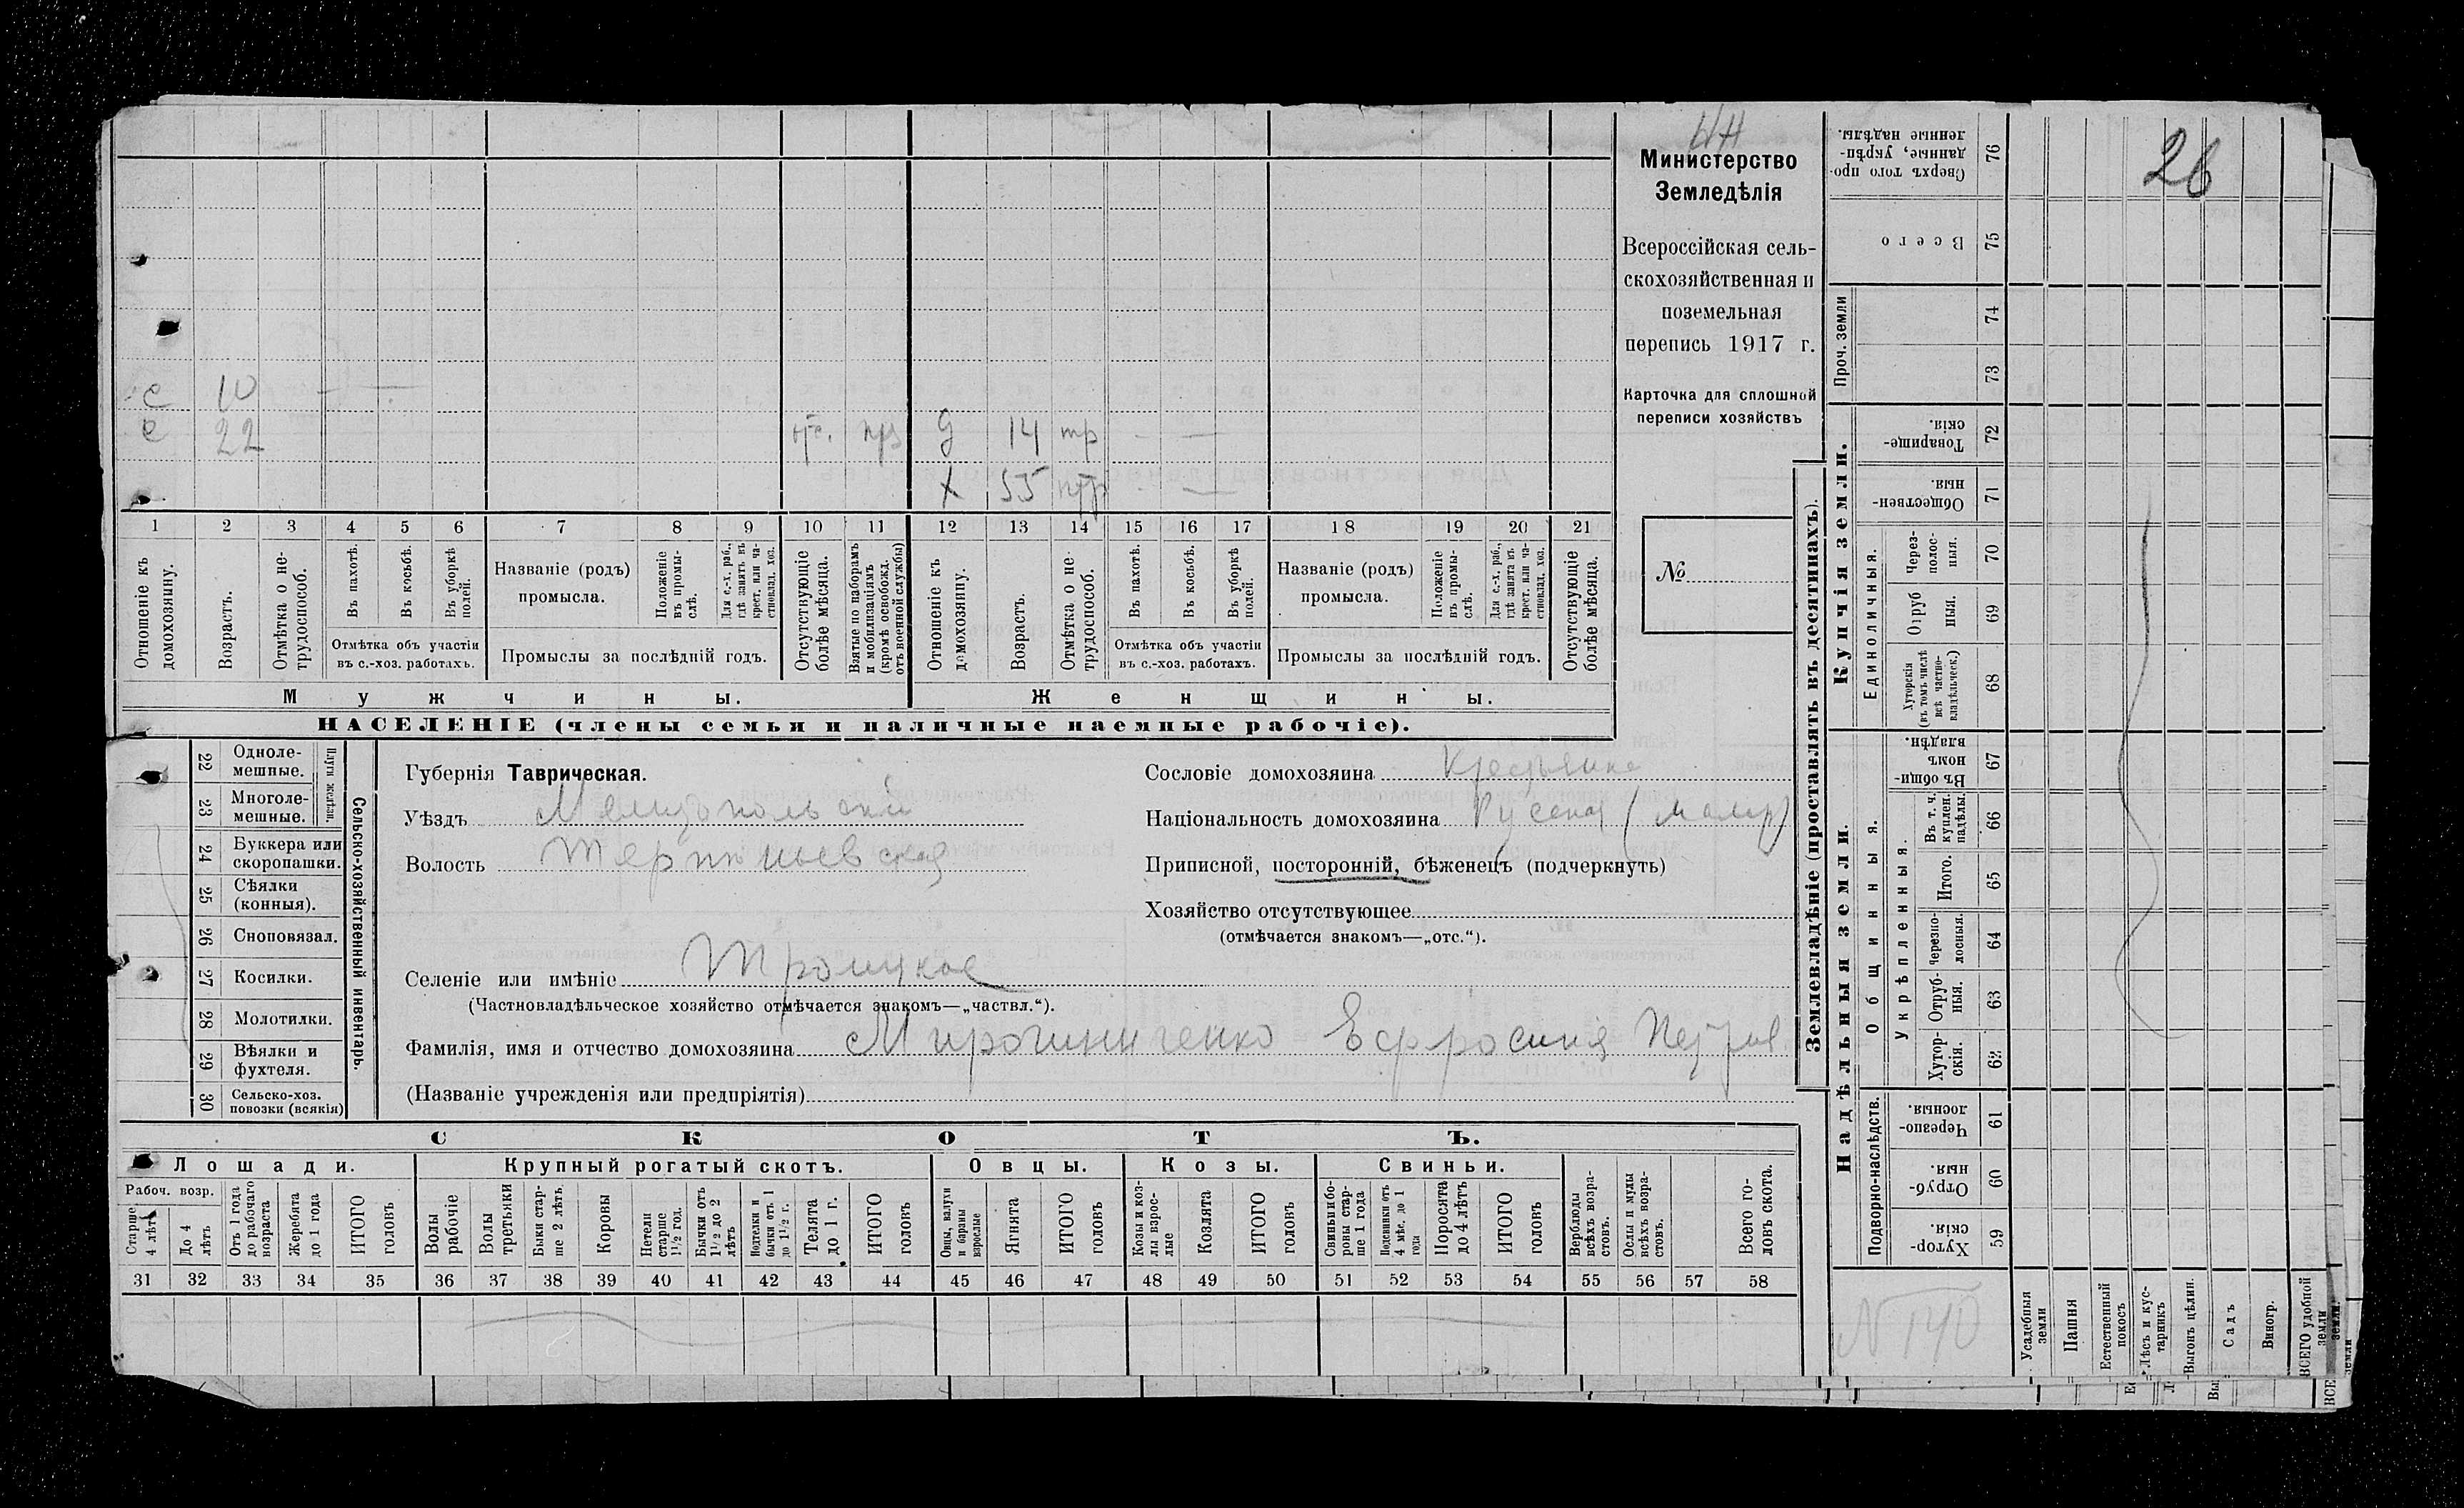 НН
Министерство
Земледѣлія
Всероссійская сель-
скохозяйственная и
поземельная
перепись 1917 г.
Карточка для сплошной
переписи хозяйствъ
№
26
с 10 — —
с 22 отс. д 14 тр - —
х 55 нтр - —
1 2 3 4 5 6 7 8 9 10 11 12 13 14 15 16 17 18 19 20 21
Отношеніе къ домохозяину.
Возрастъ.
Отмѣтка о не-трудоспособ.
Въ пахотѣ.
Въ косьбѣ.
Въ уборкѣ полей.
Отмѣтка объ участіи
въ с.-хоз. работахъ.
Названіе (родъ)
промысла.
Положеніе въ промы-слѣ.
Для с.-х. раб., гдѣ занятъ въ крест. или ча-стновлад. хоз.
Промыслы за послѣдній годъ.
Отсутствующіе болѣе мѣсяца.
Взятые по наборамъ и мобилизаціямъ (кромѣ освобожд. отъ военной службы)
Отношеніе къ домохозяину.
Возрастъ.
Отмѣтка о не-трудоспособ.
Въ пахотѣ.
Въ косьбѣ.
Въ уборкѣ полей.
Отмѣтка объ участіи
въ с.-хоз. работахъ.
Названіе (родъ)
промысла.
Положеніе въ промы-слѣ.
Для с.-х. раб., гдѣ занята въ крест. или ча-стновлад. хоз.
Промыслы за послѣдній годъ.
Отсутствующіе болѣе мѣсяца.
Мужчины.
Женщины.
НАСЕЛЕНІЕ (члены семьи и наличные наемные рабочіе).
22 Одноле-мешные.
23 Многоле-мешные.
Плуги желѣзн.
24 Буккера или скоропашки.
25 Сѣялки (конныя).
26 Сноповязал.
27 Косилки.
28 Молотилки.
29 Вѣялки и фухтеля.
30 Сельско-хоз. повозки (всякія)
Сельско-хозяйственный инвентарь.
Губернія Таврическая.
Уѣздъ Мелитопольскій
Волость Терпѣньевская
Селеніе или имѣніе Троицкое
(Частновладѣльческое хозяйство отмѣчается знакомъ—„частвл.“).
Фамилія, имя и отчество домохозяина Мирошниченко Ефросинія Петров.
(Названіе учрежденія или предпріятія)
Сословіе домохозяина Крестьянка
Національность домохозяина Русская (малор)
Приписной, посторонній, бѣженецъ (подчеркнуть)
Хозяйство отсутствующее
(отмѣчается знакомъ—„отс.“).
СКОТЪ.
Лошади. Крупный рогатый скотъ. Овцы. Козы. Свиньи.
Рабоч. возр.
Старше 4 лѣтъ
До 4 лѣтъ
Отъ 1 года до рабочаго возраста
Жеребята до 1 года
ИТОГО головъ
Волы рабочіе
Волы третьяки
Быки стар-ше 2 лѣтъ
Коровы
Нетели старше 1½ год.
Бычки отъ 1½ до 2 лѣтъ
Подтелки и бычки отъ 1 до 1½ г.
Телята до 1 г.
ИТОГО головъ
Овцы, валухи и бараны взрослые
Ягнята
ИТОГО головъ
Козы и коз-лы взрос-лые
Козлята
ИТОГО головъ
Свиньи и бо-ровы стар-ше 1 года
Подсвинки отъ 4 мѣс. до 1 года
Поросята до 4 лѣтъ
ИТОГО головъ
Верблюды всѣхъ возра-стовъ.
Ослы и мулы всѣхъ возра-стовъ.
Всего го-ловъ скота.
31 32 33 34 35 36 37 38 39 40 41 42 43 44 45 46 47 48 49 50 51 52 53 54 55 56 57 58
Землевладѣніе (проставлять въ десятинахъ).
Сверхъ того про-данные, укрѣп-ленные надѣлы. 76
Всего 75
Проч. земли 74 73
Купчія земли.
Товарище-скія. 72
Обществен-ныя. 71
Единоличныя.
Через-полос-ныя. 70
Отруб ныя. 69
Хуторскія (въ томъ числѣ всѣ частно-владѣльческ.) 68
Надѣльныя земли.
Общинныя.
Въ общи-номъ владѣн. 67
Укрѣпленныя.
Въ т. ч. куплен. надѣлы. 66
Итого. 65
Черезпо-лосныя. 64
Отруб-ныя. 63
Хутор-скія. 62
Подворно-наслѣдств.
Черезпо-лосныя. 61
Отруб-ныя. 60
Хутор-скія. 59
N 140
Усадебныя земли
Пашня
Естественный покосъ
Лѣсъ и кус-тарникъ
Выгонъ цѣлин.
Садъ
Виногр.
ВСЕГО удобной земли